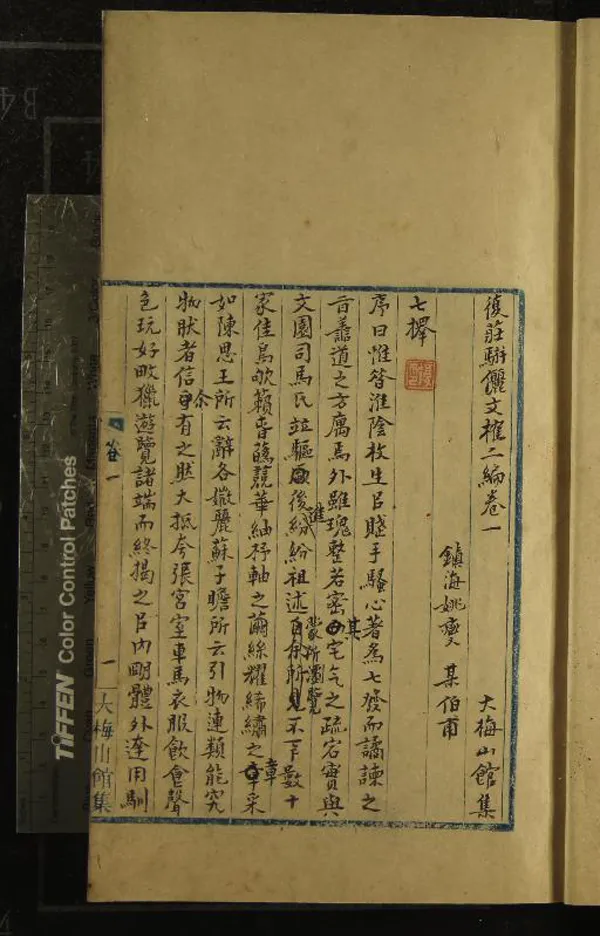 復莊駢儷文榷二編卷一
大梅山館集
鎮海姚燮某伯甫
七擇
序曰惟昔淮陰枚生㠯賤手騷心著為七發而譎諫之
旨蓋道之方厲馬外雖瑰整若密其宅气之疏宕實與
文園司馬氏竝驅進後紛紛祖述蒙所瀏覽不下數十
家佳鳥吹籟香醲競華紬杼軸之繭絲耀絺繡之章采
如陳思王所云辭各媺麗蘇子瞻所云引物連類能究
物狀者信亦有之然大抵夸張宮室車馬衣服飲食聲
色玩好畋獵遊覽諸端而終揭之㠯內朙體外達用馴
卷一
一
大梅山館集
TIFFEN Color Control Patches
B4